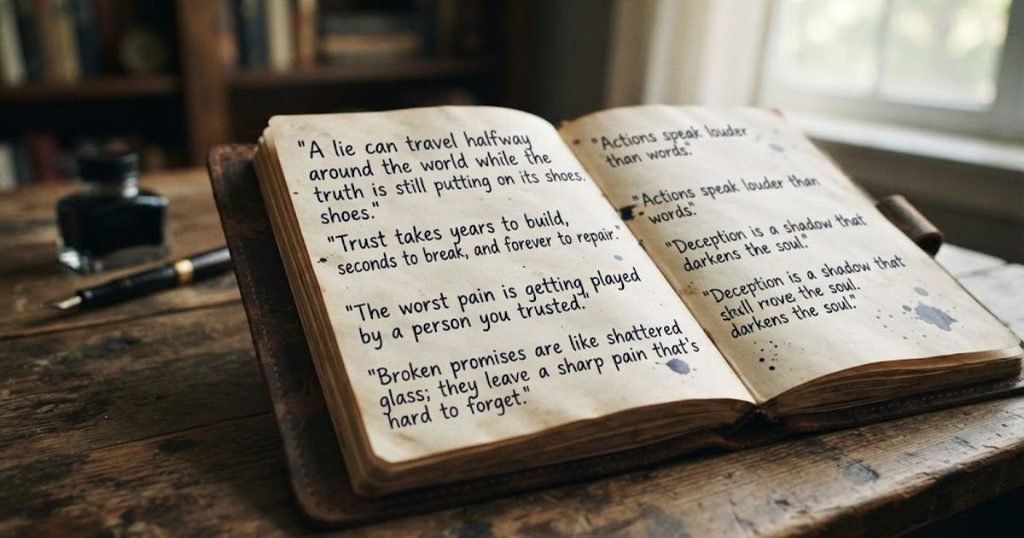 "A lie can travel halfway
around the world while the
truth is still putting on its shoes.
shoes."
"Trust takes years to build,
seconds to break, and forever to repair."
"The worst pain is getting played
by a person you trusted."
"Broken promises are like shattered
glass; they leave a sharp pain that's
hard to forget."
"Actions speak louder
than words."
"Actions speak louder than
words."
"Deception is a shadow that
darkens the soul."
"Deception is a shadow that
the soul."
darkens the soul."